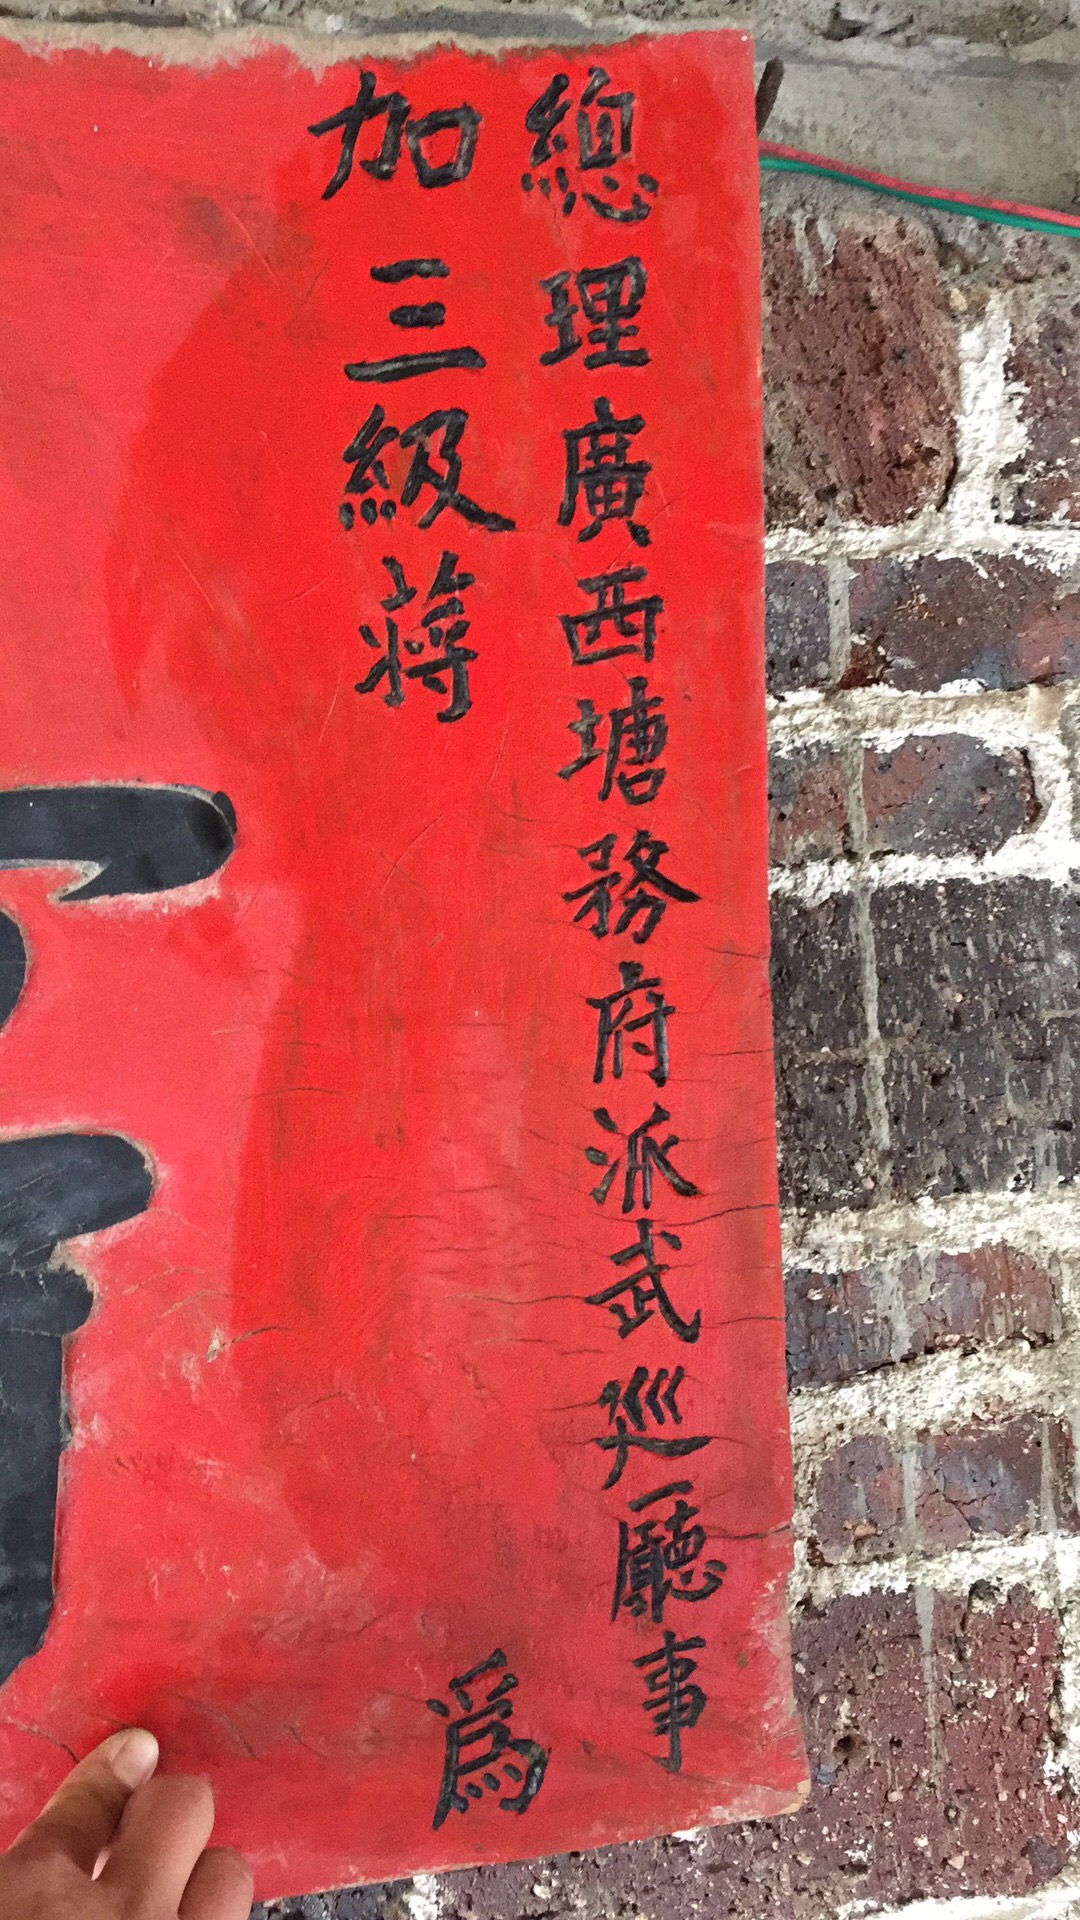 總理廣西塘務府派武巡廳事
加三級蔣爲